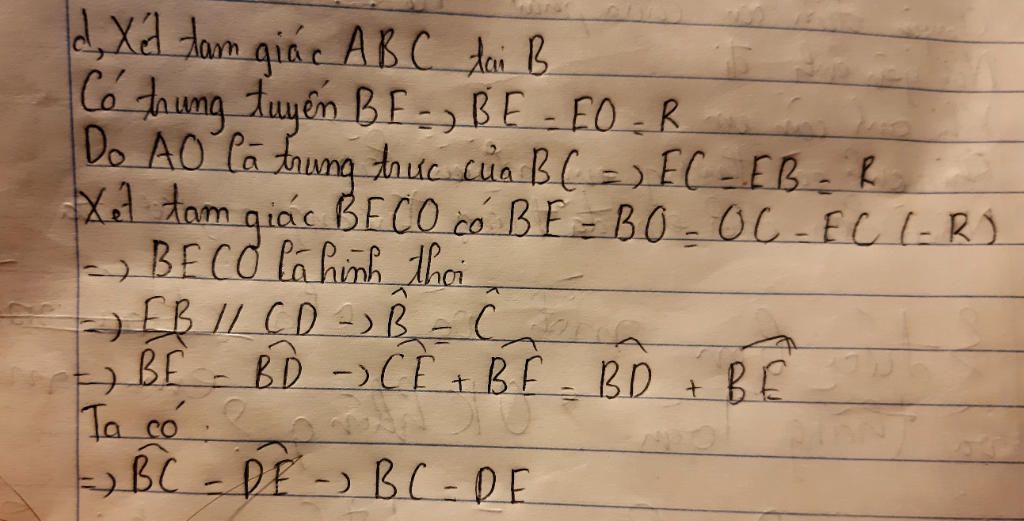 d, Xét tam giác ABC tại B
Có trung tuyến BE => BE = EO = R
Do AO là trung trực của BC => EC = EB = R
Xét tam giác BECO có BE = BO = OC = EC (= R)
=> BECO là hình thoi
=> EB // CD -> B̂ = Ĉ
=> B͡E = B͡D -> C͡E + B͡E = B͡D + B͡E
Ta có :
=> B͡C = D͡E -> BC = DE